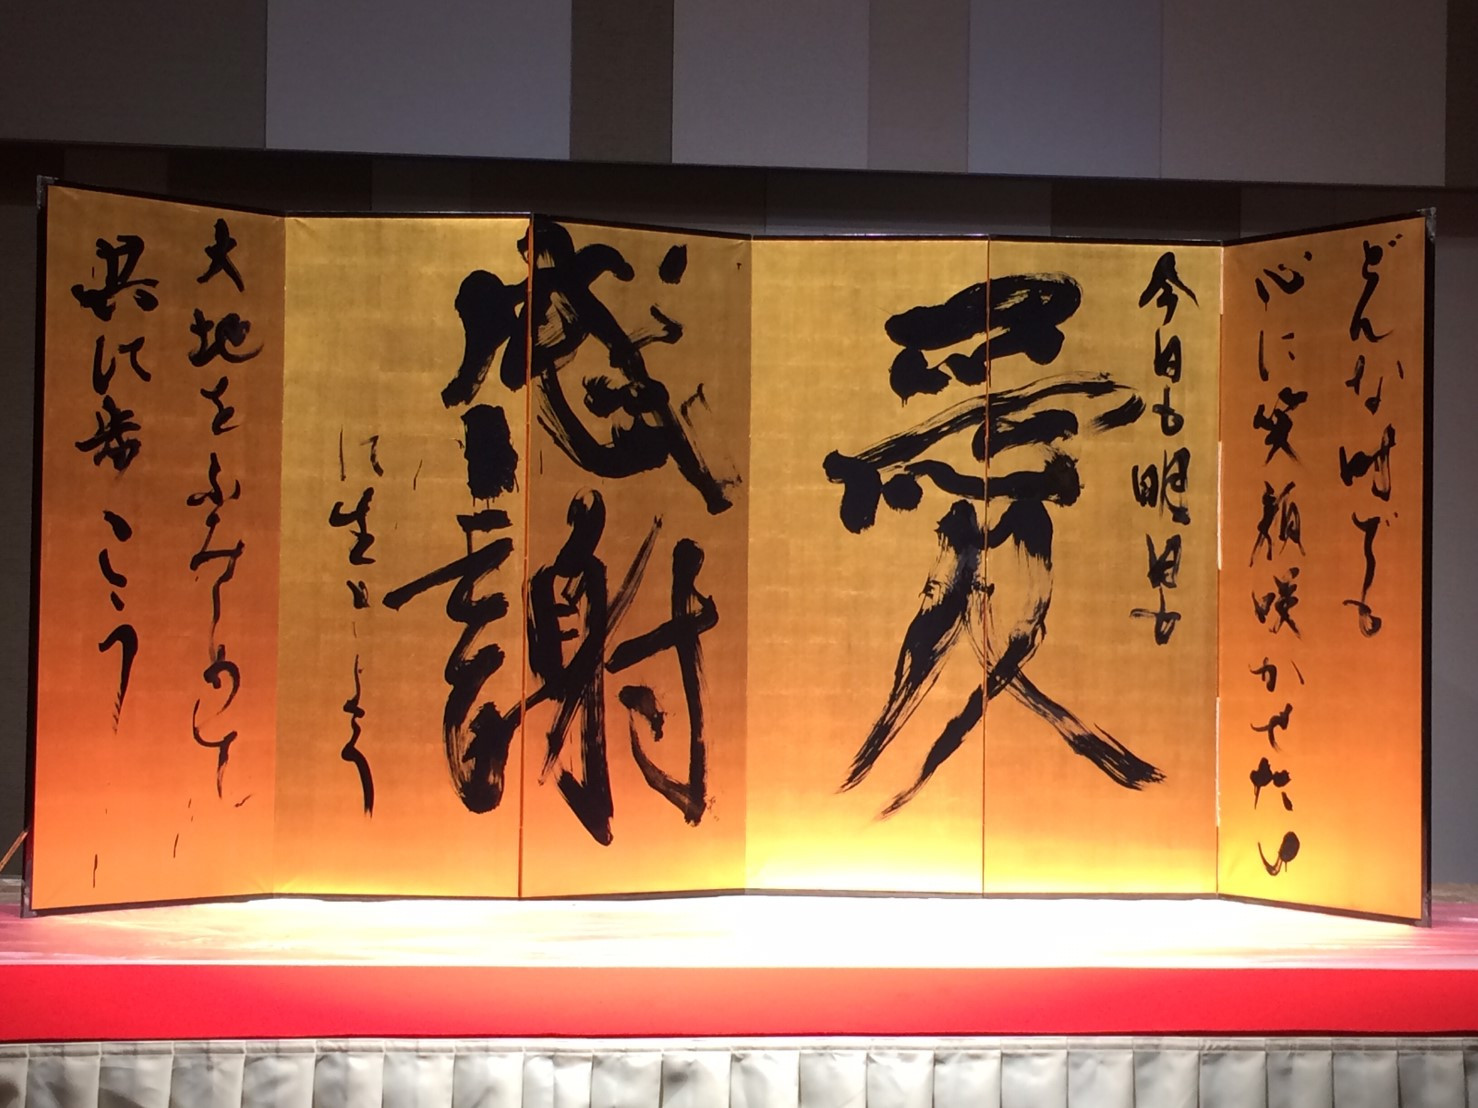 どんな時でも
心に笑顔咲かせたい
今日も明日も
愛
感謝
に生きよう
大地をふみしめて
共に歩こう